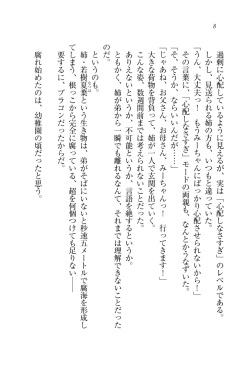 8
過剰に心配しているように見えるが、実は「心配しなさすぎ」のレベルである。
しかし、見送られる姉の方も、いつもと違っていた。
「うん、大丈夫っ！もうみーちゃんにばっかり心配させられないから！」
その言葉に、「心配しなさすぎ」モードの両親も、なんとかうなずいた。
「そ、そうか、ならいいんだが……」
「じゃあね、お父さん、お母さん、みーちゃんっ！　行ってきます！」
大きな荷物を背負って、姉が一人で玄関を出ていく。
こんな姿、数週間前までは考えられないことだった。
ありえないというか、不可能というか、言語を絶するというか。
ともかく、姉が弟から一瞬でも離れるなんて、それまでは理解できないことだった
のだ。
というのも。
姉・若樹夏葉という生き物は、弟がそばにいないと秒速五メートルで腐海を形成し
てしまう、根っこから完全に腐っている、超を何個つけても足りない――
要するに、ブラコンだったからだ。
腐れ始めたのは、幼稚園の頃だったと思う。